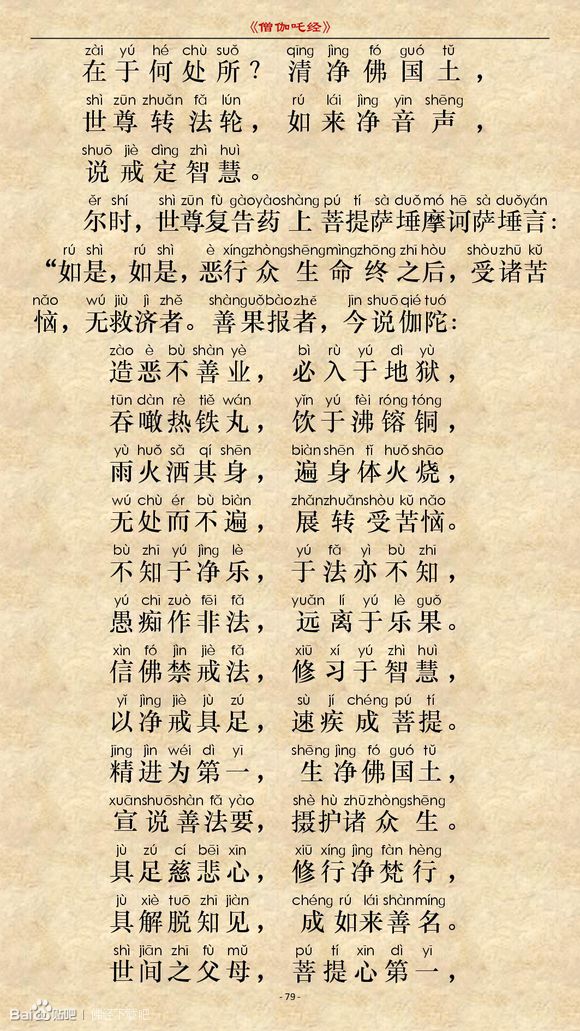 《僧伽吒经》
zài yú hé chù suǒ qīng jìng fó guó tǔ
在于何处所？ 清净佛国土，
shì zūn zhuǎn fǎ lún rú lái jìng yīn shēng
世尊转法轮， 如来净音声，
shuō jiè dìng zhì huì
说戒定智慧。
ěr shí shì zūn fù gào yào shàng pú tí sà duǒ mó hē sà duǒ yán
尔时，世尊复告药上菩提萨埵摩诃萨埵言：
rú shì rú shì è xíng zhòng shēng mìng zhōng zhī hòu shòu zhū kǔ
“如是，如是，恶行众生命终之后，受诸苦
nǎo wú jiù jì zhě shàn guǒ bào zhě jīn shuō qié tuó
恼，无救济者。善果报者，今说伽陀：
zào è bù shàn yè bì rù yú dì yù
造恶不善业， 必入于地狱，
tūn dàn rè tiě wán yǐn yú fèi róng tóng
吞噉热铁丸， 饮于沸镕铜，
yù huǒ sǎ qí shēn biàn shēn tǐ huǒ shāo
雨火洒其身， 遍身体火烧，
wú chù ér bù biàn zhǎn zhuǎn shòu kǔ nǎo
无处而不遍， 展转受苦恼。
bù zhī yú jìng lè yú fǎ yì bù zhī
不知于净乐， 于法亦不知，
yú chī zuò fēi fǎ yuǎn lí yú lè guǒ
愚痴作非法， 远离于乐果。
xìn fó jìn jiè fǎ xiū xí yú zhì huì
信佛禁戒法， 修习于智慧，
yǐ jìng jiè jù zú sù jí chéng pú tí
以净戒具足， 速疾成菩提。
jīng jìn wéi dì yī shēng jìng fó guó tǔ
精进为第一， 生净佛国土，
xuān shuō shàn fǎ yào shè hù zhū zhòng shēng
宣说善法要， 摄护诸众生。
jù zú cí bēi xīn xiū xíng jìng fàn hèng
具足慈悲心， 修行净梵行，
jù xiè tuō zhī jiàn chéng rú lái shàn míng
具解脱知见， 成如来善名。
shì jiān zhī fù mǔ pú tí xīn dì yī
世间之父母， 菩提心第一，
- 79 -
Bai贴吧 | 佛经下载吧